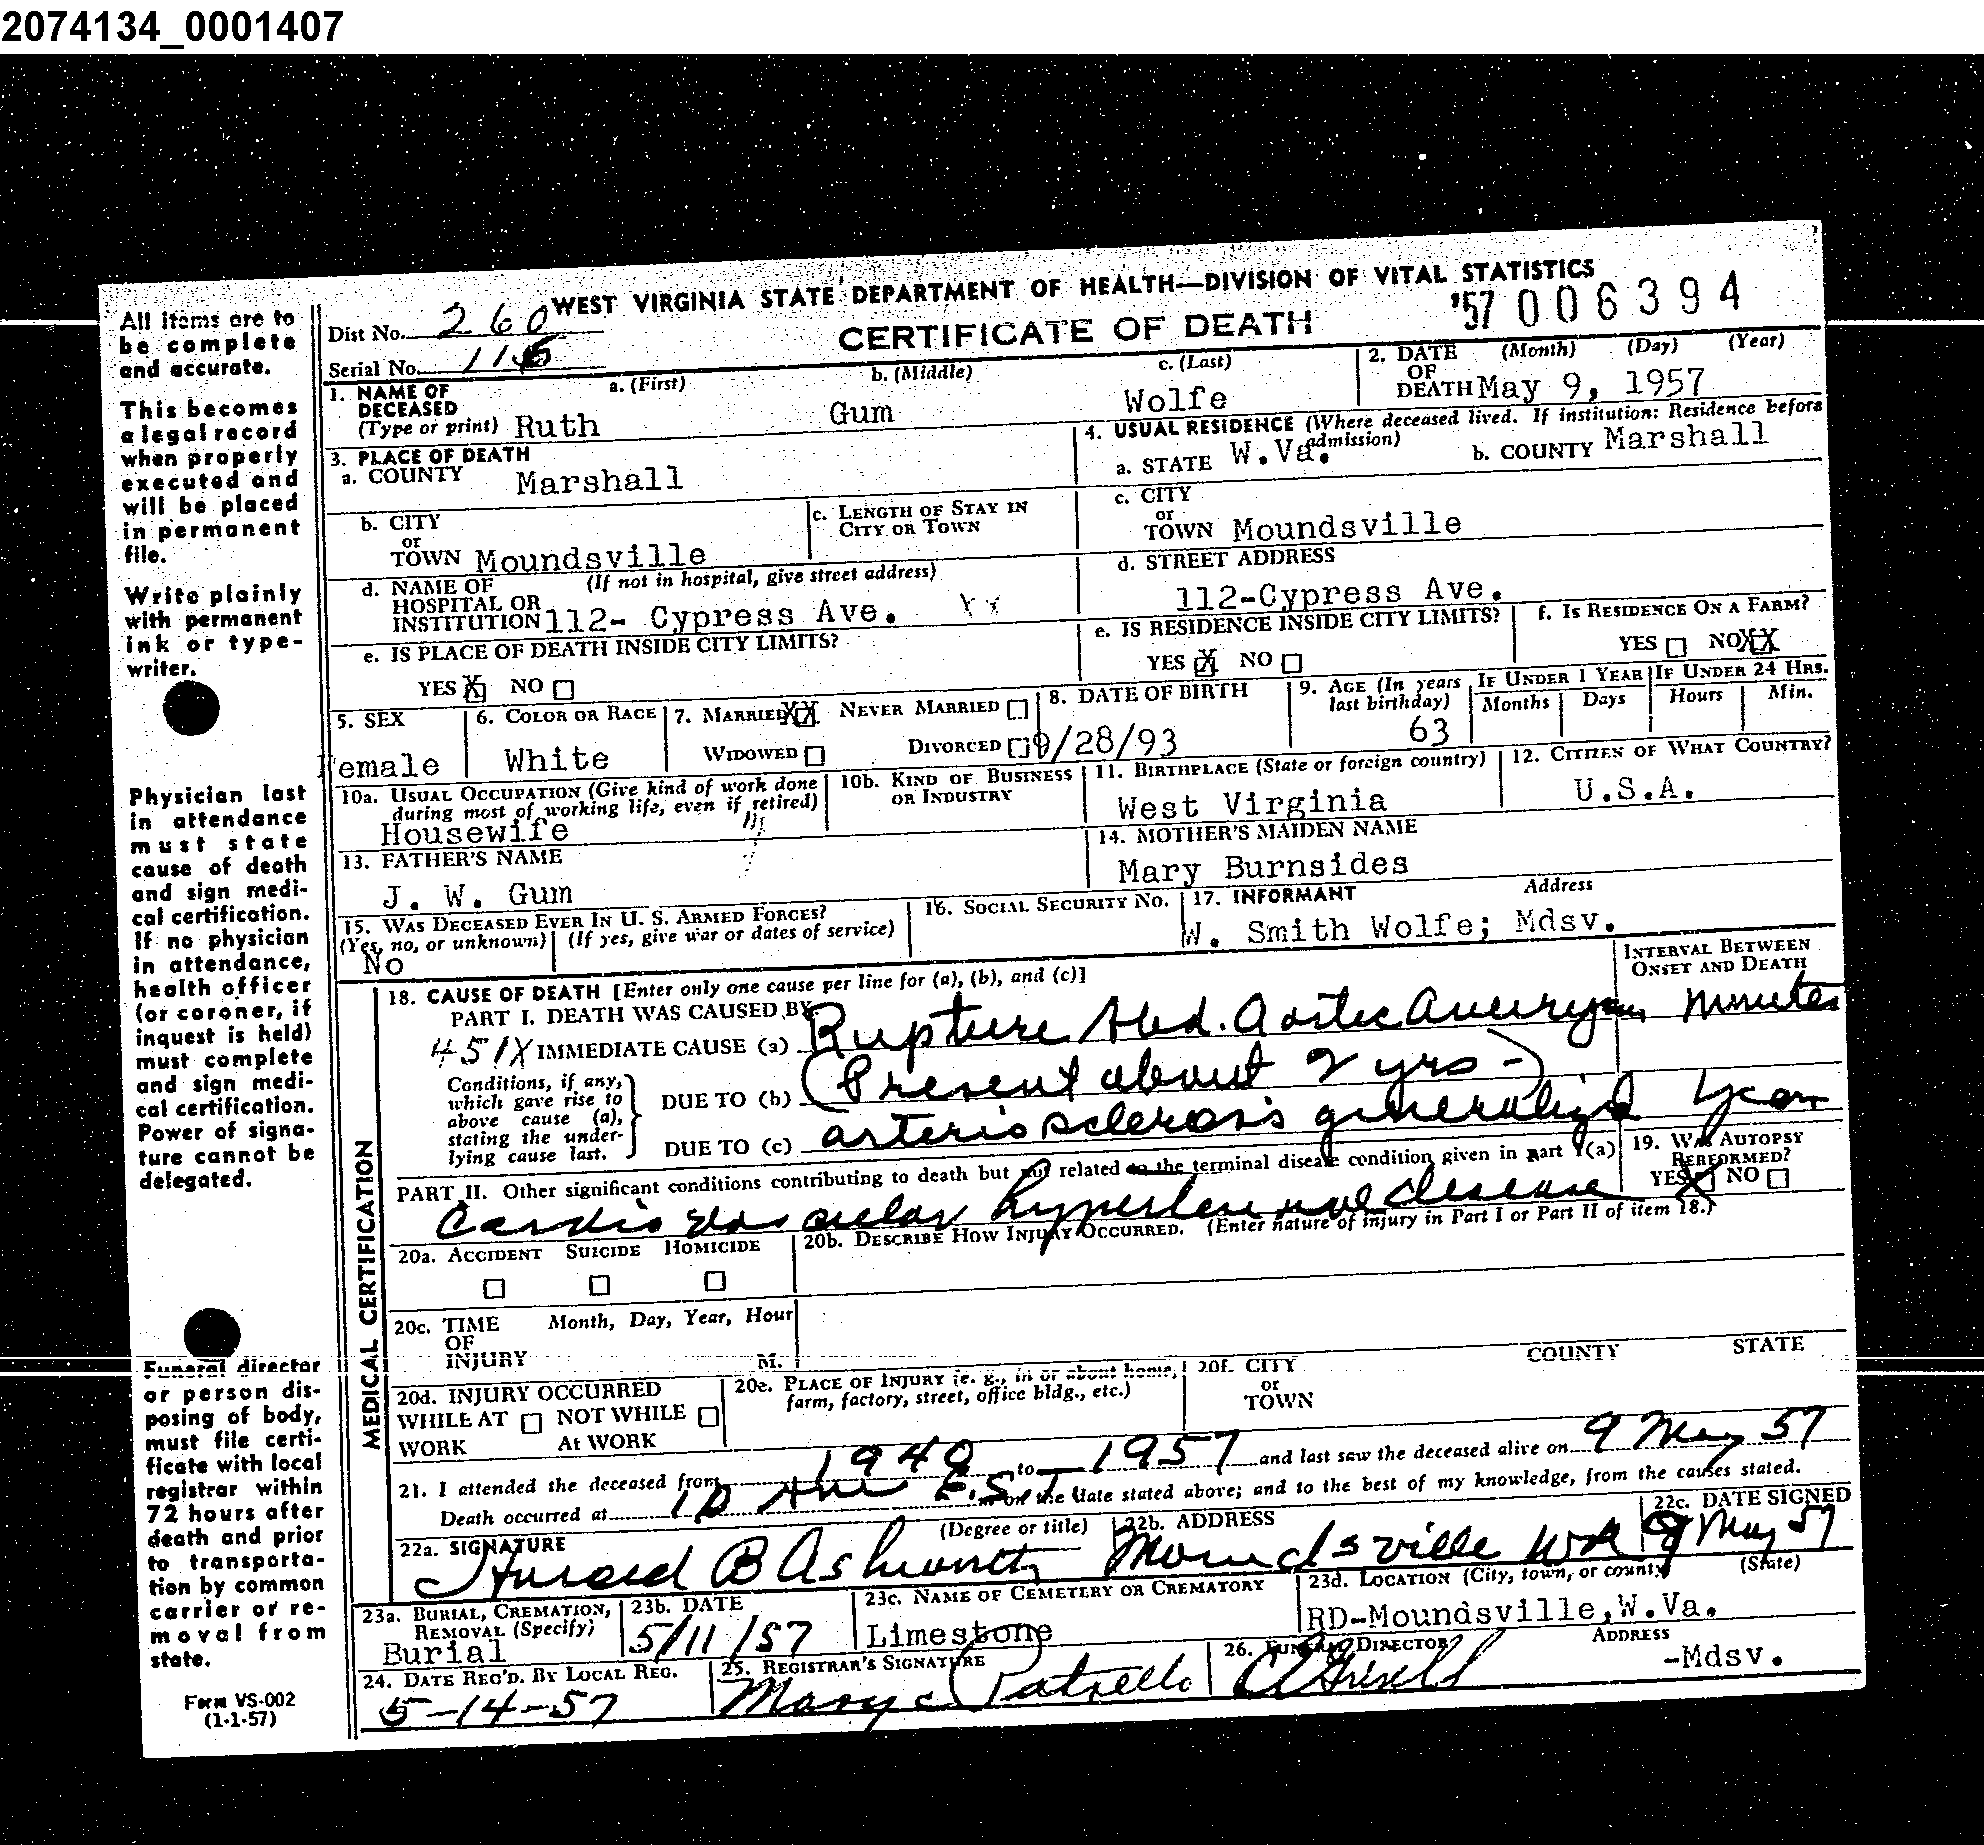 2074134_0001407
WEST VIRGINIA STATE DEPARTMENT OF HEALTH—DIVISION OF VITAL STATISTICS
Dist No. 260
CERTIFICATE OF DEATH
'57 006394
Serial No.
1. NAME OF DECEASED (Type or print) a. (First) b. (Middle) c. (Last)
Ruth Gum Wolfe
2. DATE OF DEATH (Month) (Day) (Year)
May 9, 1957
3. PLACE OF DEATH
a. COUNTY Marshall
4. USUAL RESIDENCE (Where deceased lived. If institution: Residence before admission)
a. STATE W.Va. b. COUNTY Marshall
b. CITY or TOWN Moundsville
c. LENGTH OF STAY IN CITY OR TOWN
c. CITY or TOWN Moundsville
d. NAME OF HOSPITAL OR INSTITUTION (If not in hospital, give street address)
112- Cypress Ave.
d. STREET ADDRESS
112-Cypress Ave.
e. IS PLACE OF DEATH INSIDE CITY LIMITS?
YES X NO
e. IS RESIDENCE INSIDE CITY LIMITS?
YES X NO
f. IS RESIDENCE ON A FARM?
YES NO XX
5. SEX
Female
6. COLOR OR RACE
White
7. MARRIED XX NEVER MARRIED
WIDOWED DIVORCED
8. DATE OF BIRTH
9/28/93
9. AGE (In years last birthday)
63
IF UNDER 1 YEAR
Months Days
IF UNDER 24 HRS.
Hours Min.
10a. USUAL OCCUPATION (Give kind of work done during most of working life, even if retired)
Housewife
10b. KIND OF BUSINESS OR INDUSTRY
11. BIRTHPLACE (State or foreign country)
West Virginia
12. CITIZEN OF WHAT COUNTRY?
U.S.A.
13. FATHER'S NAME
J. W. Gum
14. MOTHER'S MAIDEN NAME
Mary Burnsides
15. WAS DECEASED EVER IN U. S. ARMED FORCES?
(Yes, no, or unknown) (If yes, give war or dates of service)
No
16. SOCIAL SECURITY NO.
17. INFORMANT Address
W. Smith Wolfe; Mdsv.
MEDICAL CERTIFICATION
18. CAUSE OF DEATH [Enter only one cause per line for (a), (b), and (c)]
INTERVAL BETWEEN ONSET AND DEATH
PART I. DEATH WAS CAUSED BY
451X IMMEDIATE CAUSE (a) Rupture Abd. Aortic Aneurysm minutes
Conditions, if any, which gave rise to above cause (a), stating the underlying cause last.
DUE TO (b) (Present about 2 yrs-)
DUE TO (c) arteriosclerosis generalized year
PART II. Other significant conditions contributing to death but not related to the terminal disease condition given in part I(a)
Cardio vascular hypertensive disease
19. WAS AUTOPSY PERFORMED?
YES X NO
20a. ACCIDENT SUICIDE HOMICIDE
20b. DESCRIBE HOW INJURY OCCURRED. (Enter nature of injury in Part I or Part II of item 18.)
20c. TIME OF INJURY Month, Day, Year, Hour
M.
20d. INJURY OCCURRED
WHILE AT WORK NOT WHILE At WORK
20e. PLACE OF INJURY (e. g., in or about home, farm, factory, street, office bldg., etc.)
20f. CITY or TOWN COUNTY STATE
21. I attended the deceased from 1940 to 1957 and last saw the deceased alive on 9 May 57
Death occurred at 10 E.S.T. m on the date stated above; and to the best of my knowledge, from the causes stated.
22a. SIGNATURE (Degree or title)
Harold B Ashworth
22b. ADDRESS
Moundsville W Va
22c. DATE SIGNED
9 May 57
23a. BURIAL, CREMATION, REMOVAL (Specify)
Burial
23b. DATE
5/11/57
23c. NAME OF CEMETERY OR CREMATORY
Limestone
23d. LOCATION (City, town, or county) (State)
RD-Moundsville,W.Va.
24. DATE REC'D. BY LOCAL REG.
5-14-57
25. REGISTRAR'S SIGNATURE
Mary C Patrello
26. FUNERAL DIRECTOR ADDRESS
-Mdsv.
All items are to
be complete
and accurate.
This becomes
a legal record
when properly
executed and
will be placed
in permanent
file.
Write plainly
with permanent
ink or type-
writer.
Physician last
in attendance
must state
cause of death
and sign medi-
cal certification.
If no physician
in attendance,
health officer
(or coroner, if
inquest is held)
must complete
and sign medi-
cal certification.
Power of signa-
ture cannot be
delegated.
Funeral director
or person dis-
posing of body,
must file certi-
ficate with local
registrar within
72 hours after
death and prior
to transporta-
tion by common
carrier or re-
moval from
state.
Form VS-002
(1-1-57)